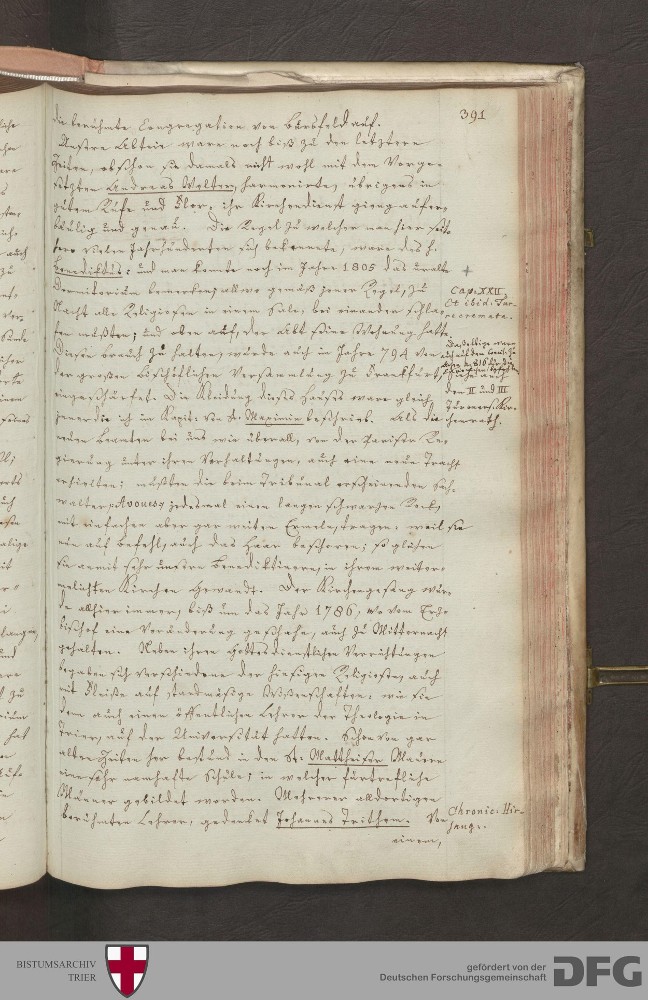 391
die berühmte Congregation von Bursfeld auf.
Unsere Abtei ware noch biß zu den letztern
Zeiten, obschon sie damals nicht wohl mit dem Vorge-
setzten Andreas Welter, harmonirte, übrigens in
gutem Rufe und Flor, ihr Kirchendienst gieng aufer-
bäulig und genau. Die Regel zu welcher man hier seit
so vielen Jahrhunderten sich bekennete, ware des h.
Benediktus: und man konnte noch im Jahre 1805 das uralte +
Dormitorium bemerken, allwo gemäß jener Regel, zu
Cap. XXII
Et ibid. Tur-
recremata.
Nacht alle Religiosen in einem Sale, bei einander schla-
fen mußten; und oben auf, der Abt seine Wohnung hatte.
Diesen brauch zu halten, wurde auch im Jahre 794 von
der großen bischöflichen Versammlung zu Frankfurt,
eingeschärfet. Die Kleidung dieses Hauses ware gleich
den II und III
jener die ich im Kapit: von St. Maximin beschrieb. Als die
neuen Beamten bei uns wie überall, von der Pariser Re-
gierung unter ihren Verhaltungen, auch eine neue Tracht
erhielten; mußten die beim Tribunal erscheinenden Sach-
walter, Avoues, jedesmal einen langen schwarzen Rock,
mit einfachen aber gar weiten Ermeln, tragen: weil sie
nun auf Befehl, auch das Haar beschoren; so glichen
sie damit sehr unsern Benediktinern, in ihrem weiter-
melichten Kirchen Gewandt. Der Kirchengesang wur-
de allhier immer, biß um das Jahr 1786, wo vom Erz-
bischof eine Veränderung geschahe, auch zu Mitternacht
gehalten. Neben ihren Gottesdienstlichen Verrichtungen
begaben sich verschiedene der hiesigen Religiosen, auch
mit Fleiße auf standmäßige Wißenschaften: wie sie
dann auch einen öffentlichen Lehrer der Theologie in
Trier, auf der Universität hatten. Schon von gar
alten Zeiten her bestund in den St. Mattheiser Mauern
eine sehr namhafte Schule; in welcher fürtrefliche
Männer gebildet worden. Mehrerer alldortigen
berühmten Lehrer, gedenket Johannes Trithem. Von
Chronic. Hir-
saug.
einem,
BISTUMSARCHIV
TRIER
gefördert von der
Deutschen Forschungsgemeinschaft
DFG